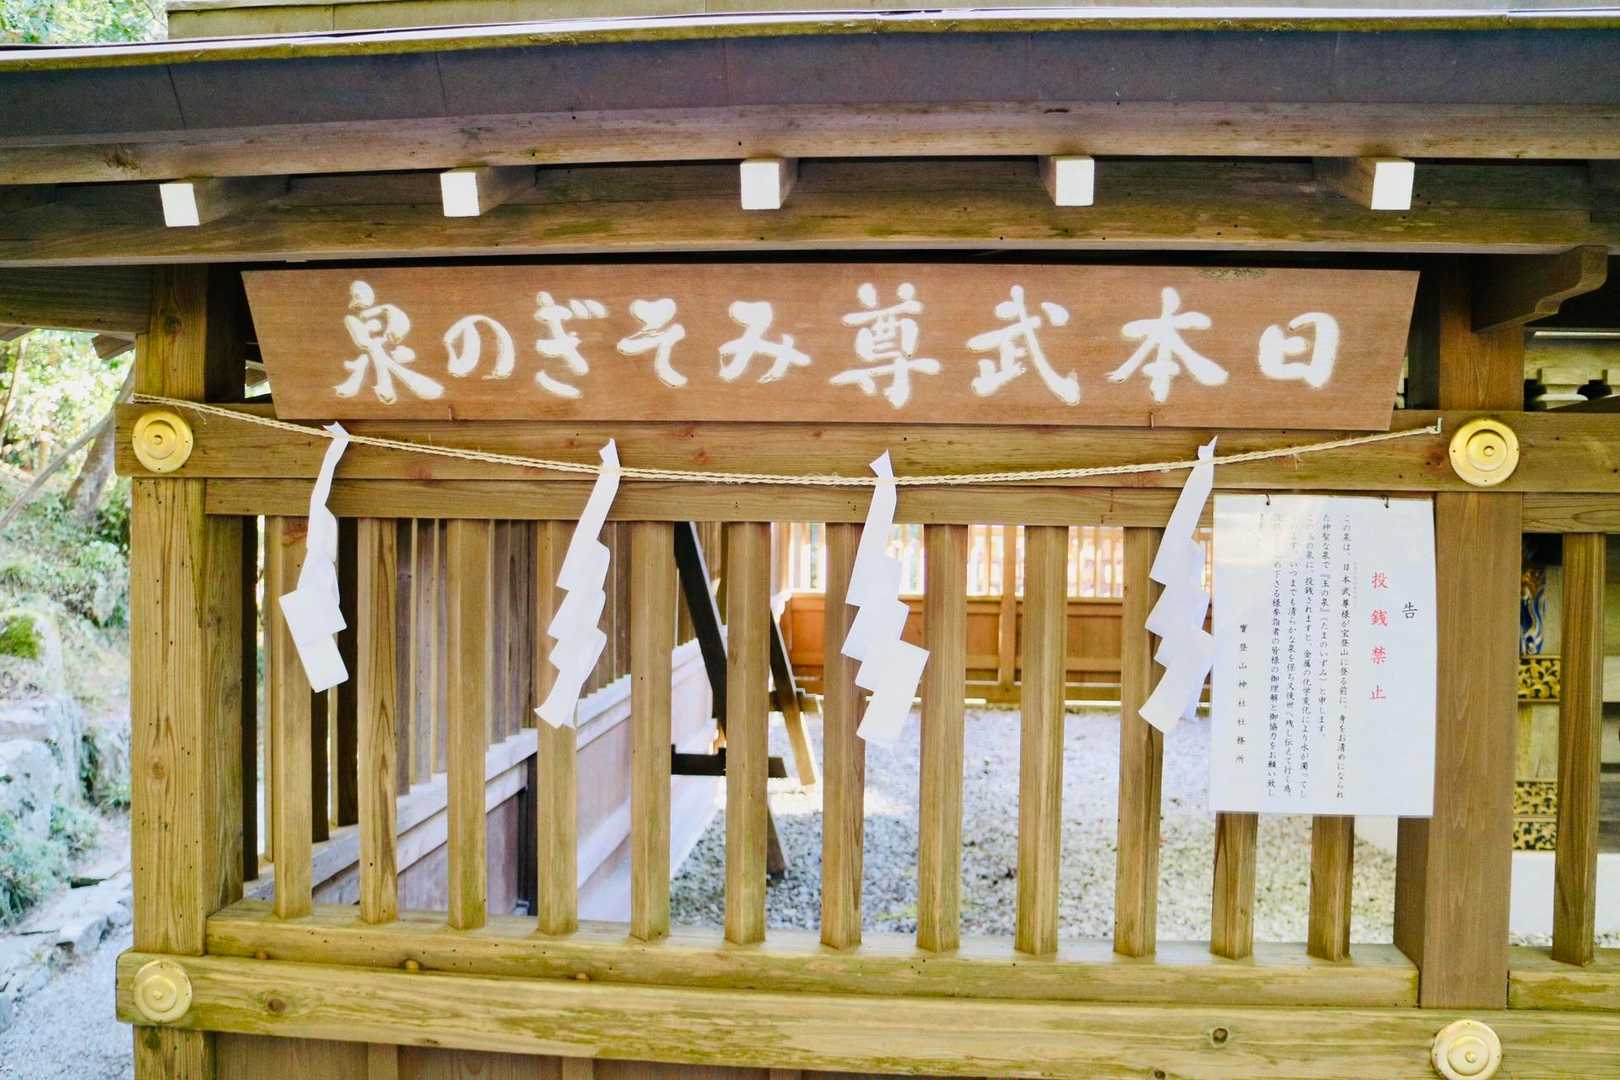 日本武尊みそぎの泉
告
投銭禁止
この泉は、日本武尊様が宝登山に登る前に、身をお清めになられ
た神聖な泉で『玉の泉』（たまのいずみ）と申します。
の泉に、投銭されますと、金属の化学変化により水が濁ってし
ます。いつまでも清らかな泉を保ち又後世へ残し伝えて行く為、
め下さる様参詣者の皆様の御理解と御協力をお願い致し
寶登山神社社務所